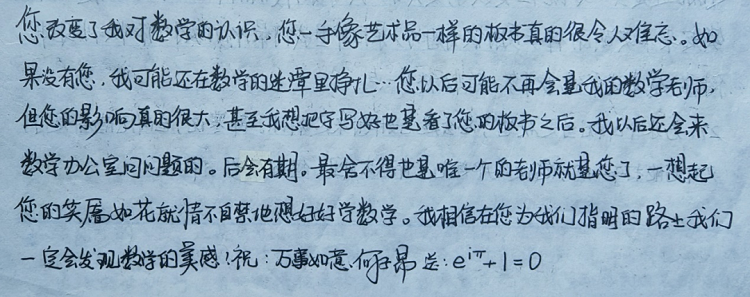 您改变了我对数学的认识,您一手像艺术品一样的板书真的很令人难忘。如
果没有您,我可能还在数学的迷潭里挣扎…您以后可能不再会是我的数学老师,
但您的影响真的很大,甚至我想把字写好也是看了您的板书之后。我以后还会来
数学办公室问问题的。后会有期。最舍不得也是唯一个的老师就是您了,一想起
您的笑靥如花就情不自禁地想好好学数学。我相信在您为我们指明的路上我们
一定会发现数学的美感!祝:万事如意。何 昂 送:e^{iπ}+1=0